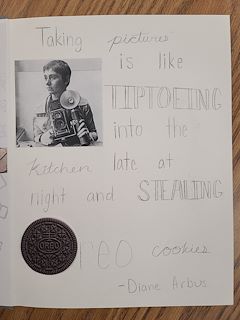 Taking pictures
is like
TIPTOEING
into the
kitchen late at
night and STEALING
OREO reo cookies
-Diane Arbus